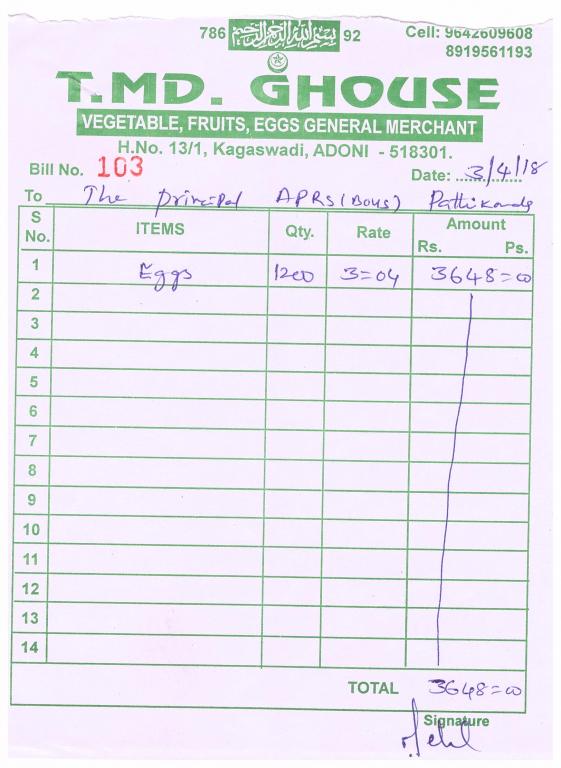 786 بسم الله الرحمن الرحيم 92
Cell: 9642609608
8919561193
T.MD. GHOUSE
VEGETABLE, FRUITS, EGGS GENERAL MERCHANT
H.No. 13/1, Kagaswadi, ADONI - 518301.
Bill No. 103 Date: 3/4/18
To The principal APRS (Boys) Pattikonda
S No. ITEMS Qty. Rate Amount Rs. Ps.
1 Eggs 1200 3=04 3648=00
2
3
4
5
6
7
8
9
10
11
12
13
14
TOTAL 3648=00
Signature